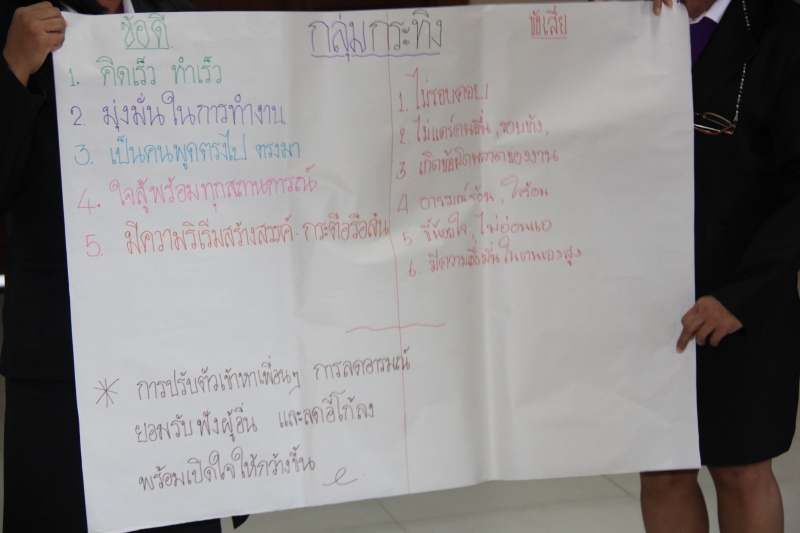 ข้อดี
กลุ่มกระทิง
ข้อเสีย
1. คิดเร็ว ทำเร็ว
2. มุ่งมั่นในการทำงาน
3. เป็นคนพูดตรงไป ตรงมา
4. ใจสู้พร้อมทุกสถานการณ์
5. มีความริเริ่มสร้างสรรค์ - กระตือรือล้น
1. ไม่รอบคอบ
2 ไม่แคร์คนอื่น,
3 เกิดข้อผิดพลาดของงาน
4 อารมณ์ร้อน, ใจร้อน
5 ขี้น้อยใจ, ไม่อ่อนแอ
6. มีความเชื่อมั่นในตนเองสูง
* การปรับตัวเข้าหาเพื่อนๆ การลดอารมณ์
ยอมรับฟังผู้อื่น และลดอีโก้ลง
พร้อมเปิดใจให้กว้างขึ้น